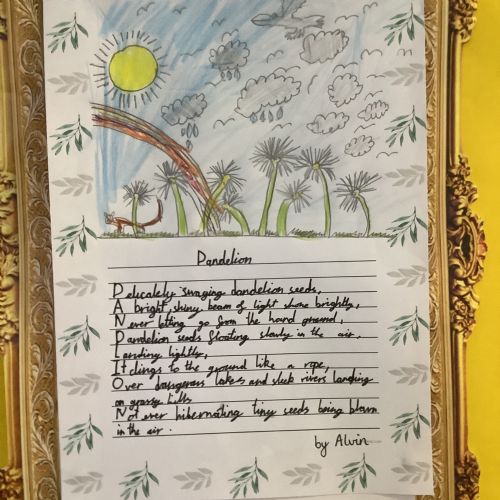 Dandelion
Delicately swaying dandelion seeds,
A bright, shiny beam of light shone brightly,
Never letting go from the hard ground,
Dandelion seeds floating slowly in the air.
Landing lightly,
It clings to the ground like a rope,
Over dangerous lakes and sleek rivers landing
on grassy hills
Not ever hibernating tiny seeds being blown
in the air.
by Alvin